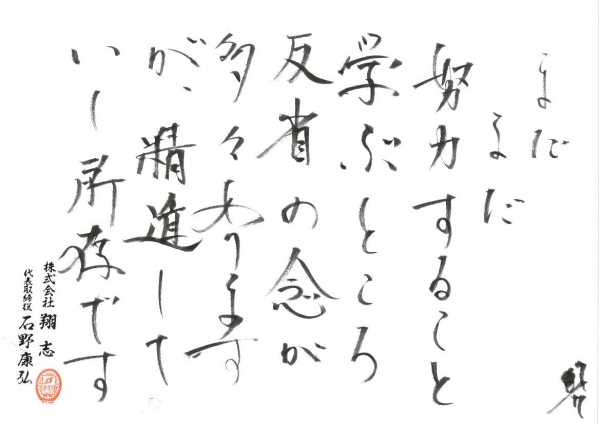 まだ
まだ
努力すること
学ぶところ
反省の念が
多々あります
が、精進して
いく所存です
株式会社 翔志
代表取締役 石野康弘